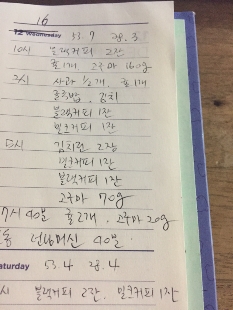 16
12 Wednesday 53.7 28.3
10시 블랙커피 2잔
홀1개 고구마 160g
2시 사과 1/2개, 홀1개
김치
블랙커피 1잔
밀크커피 1잔
5시 김치전 2장
밀크커피 1잔
블랙커피 1잔
고구마 70g
7시 40분 홀2개, 고구마 20g
런닝머신 40분.
Saturday 53.4 28.4
시 블랙커피 2잔, 밀크커피 1잔